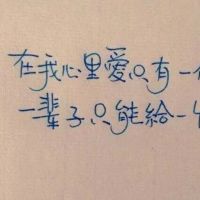 在我心里爱只有一
一輩子只能給一